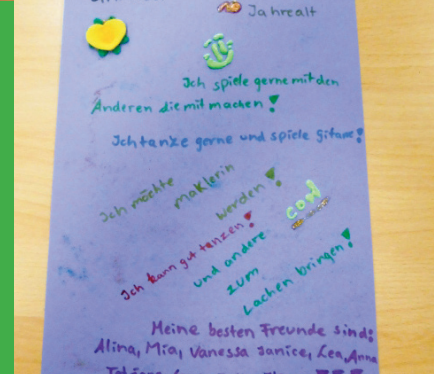 Jahre alt
Ich spiele gerne mit den
Anderen die mit machen!
Ich tanze gerne und spiele Gitarre!
Ich möchte maklerin werden!
cool
Ich kann gut tenzen!
und andere
zum
Lachen bringen!
Meine besten Freunde sind:
Alina, Mia, Vanessa Janice, Lea, Anna